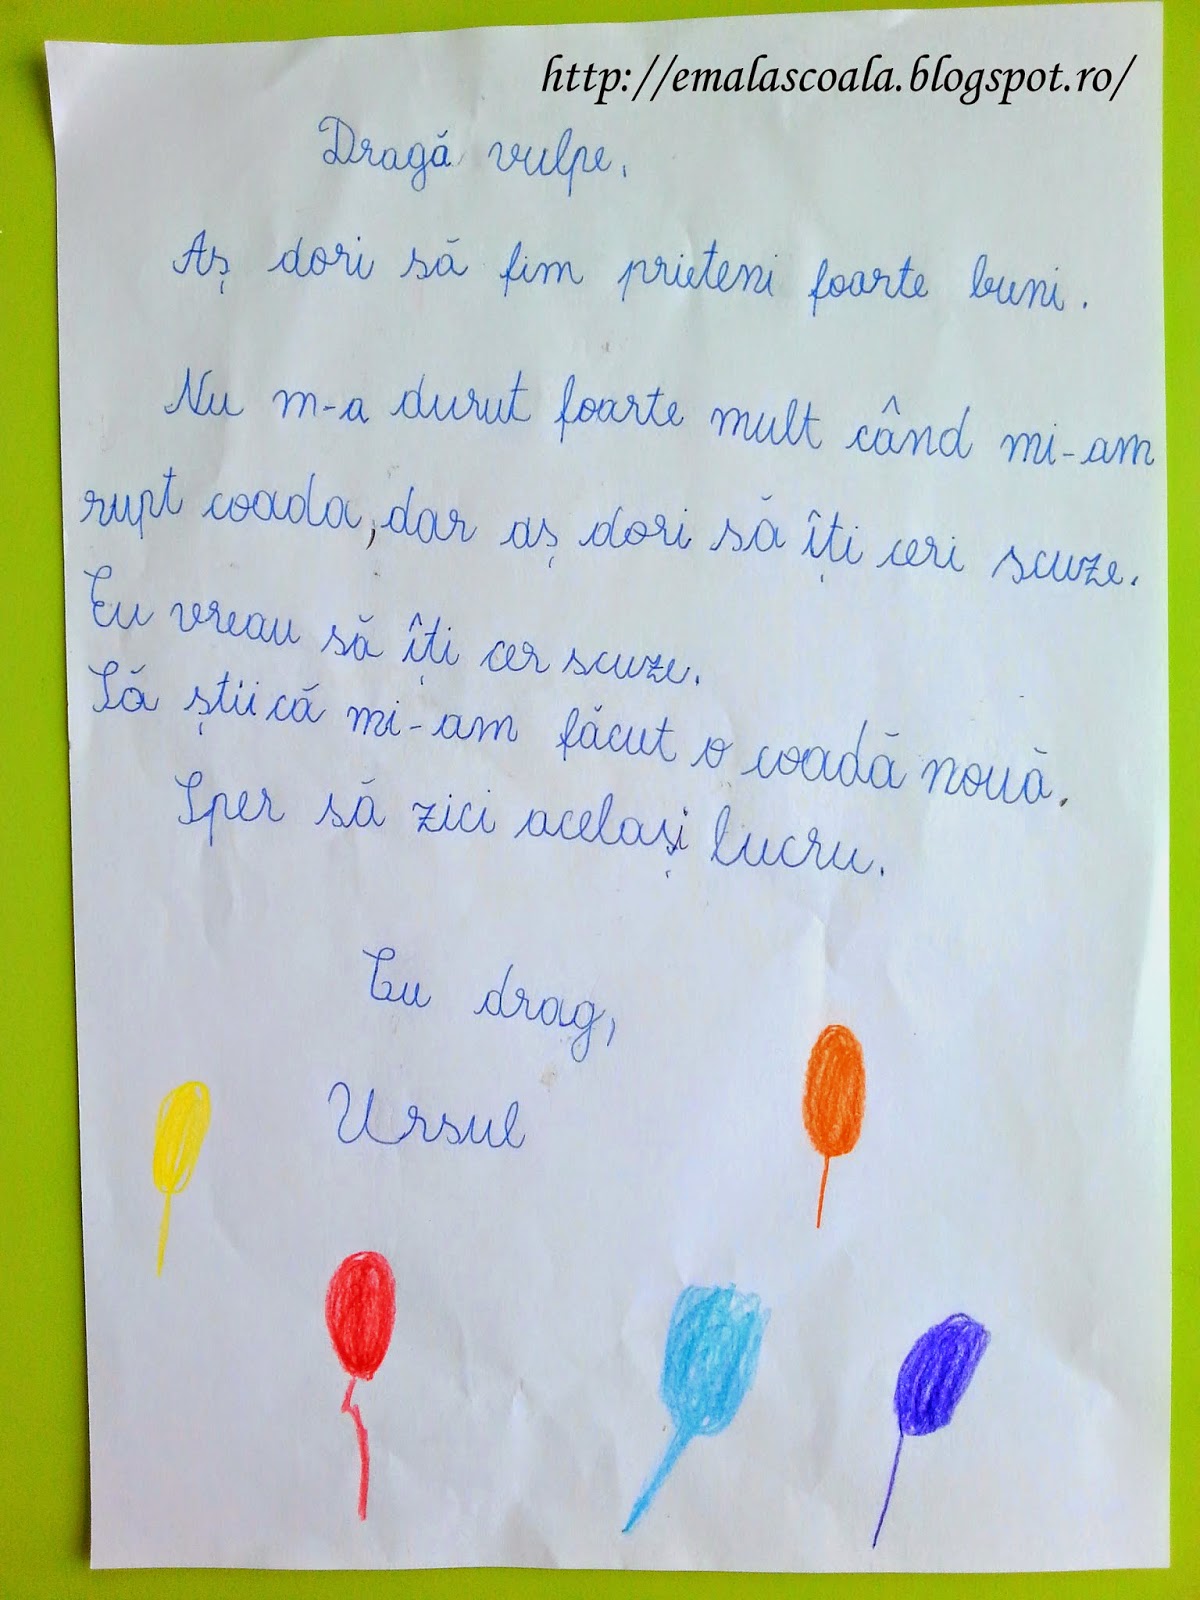 http://emalascoala.blogspot.ro/
Dragă vulpe,
Aș dori să fim prieteni foarte buni.
Nu m-a durut foarte mult când mi-am
rupt coada, dar aș dori să îți ceri scuze.
Eu vreau să îți cer scuze.
Să știi că mi-am făcut o coadă nouă.
Sper să zici același lucru.
Cu drag,
Ursul